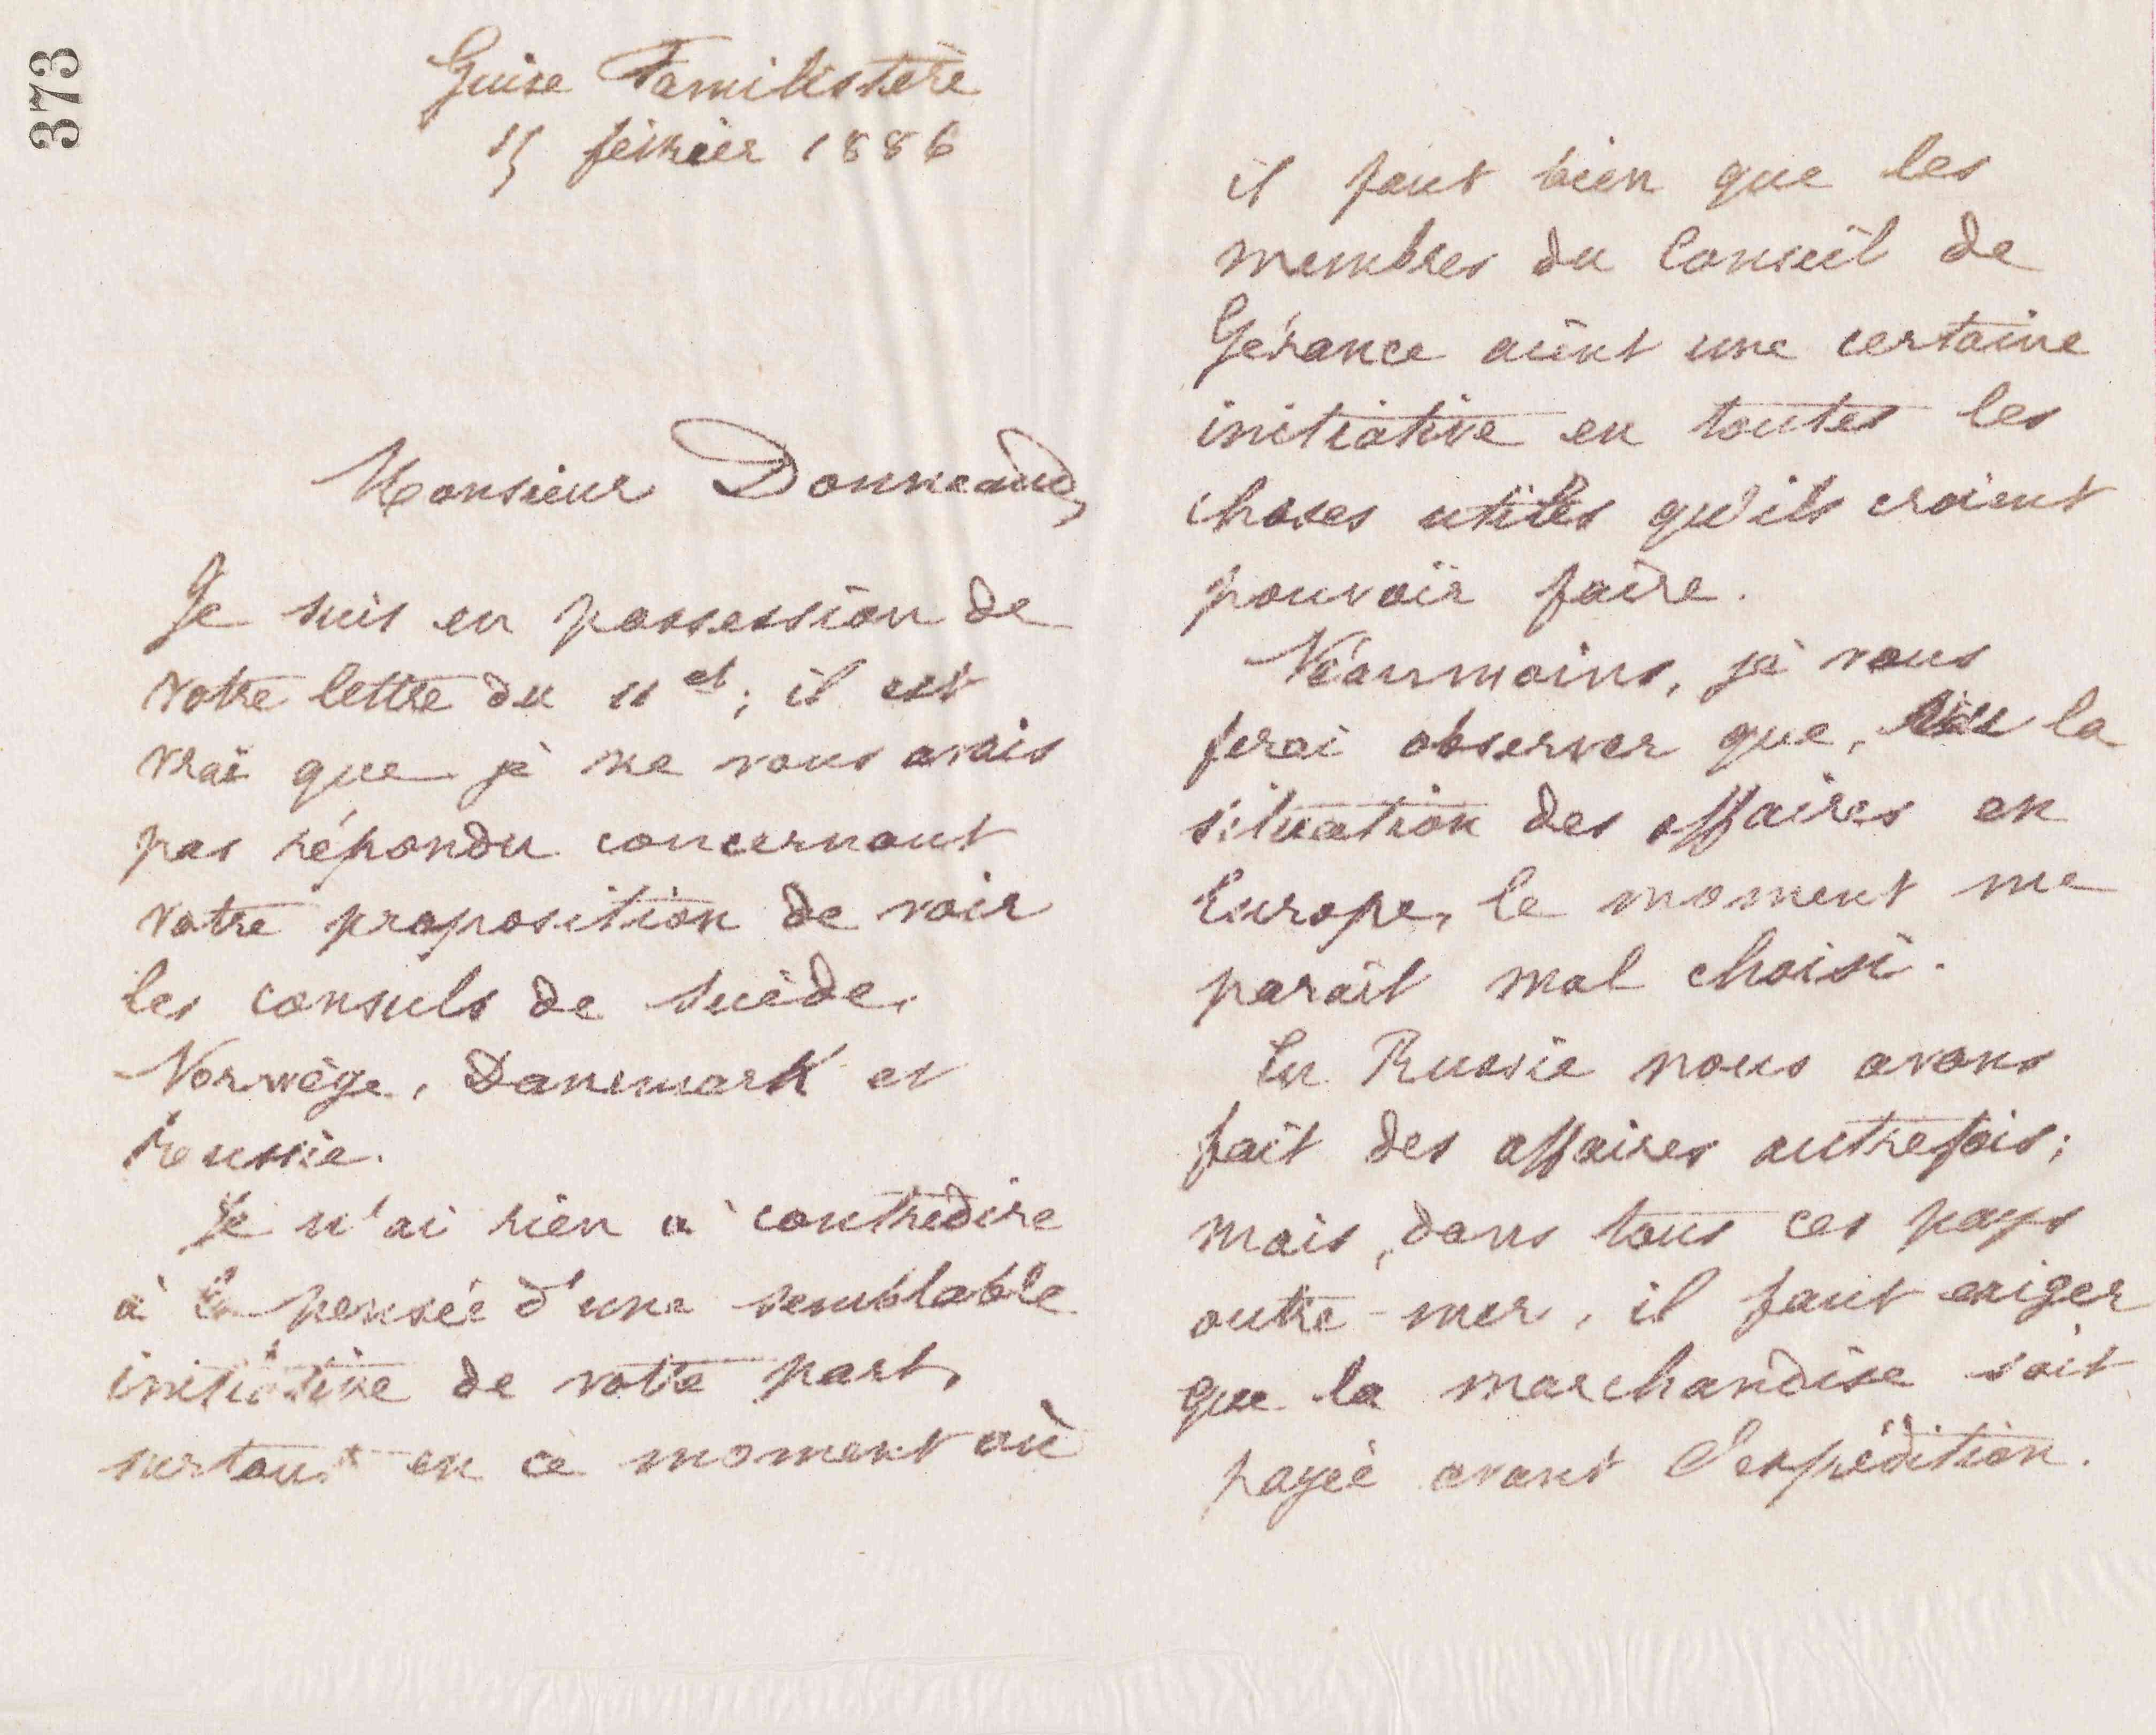 373
Guise Familistère
15 février 1886
Monsieur Donneaud,
Je suis en possession de
votre lettre du 11 ct; il est
vrai que je ne vous avais
pas répondu concernant
votre proposition de voir
les consuls de Suède,
Norwège, Danemark et
Russie.
Je n'ai rien à contredire
à la pensée d'une semblable
initiative de votre part,
surtout en ce moment où
il faut bien que les
membres du Conseil de
Gérance aient une certaine
initiative en toutes les
choses utiles qu'ils croient
pouvoir faire.
Néanmoins, je vous
ferai observer que, la
situation des affaires en
Europe, le moment me
paraît mal choisi.
En Russie nous avons
fait des affaires autrefois;
mais, dans tous ces pays
outre-mer, il faut exiger
que la marchandise soit
payée avant l'expédition.